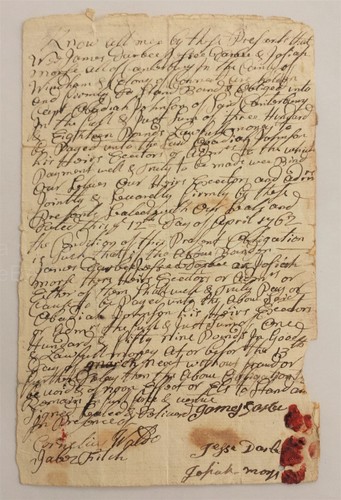 Know all men by these Presents that
We James Darbee Jesse Darbee & Josiah
Morse all of Canterbury in the County of
Windham & Colony of Connecticut are holden
and firmly Do stand Bound & obliged unto
Capt Obadiah Johnson of Sd Canterbury
In the full & Just sum of three Hundred
& Eighteen Pounds Lawfull money to
be Payed unto the Said Obadiah Johnson
his Heirs Executors or Admrs to the which
Payment well & Truly to be made we Bind
Our Selves Our Heirs Executors and Admrs
Jointly & Severally firmly by these
Presents Sealed with Our Seals and
Dated this 12th Day of April 1762
the Condition of this Present Obligation
is Such that if the Above Bounden
James Darbee Jesse Darbee and Josiah
Morse their Heirs Executors or Admrs or
Either of them Shall well & Truly Pay or
Cause to be Payed unto the Above Said
Obadiah Johnson his Heirs Executors
or Admrs the full & Just sum of One
Hundred & fifty Nine Pounds In
Lawfull money At or before the
Day of March Next without fraud or
further Delay then the Above
be void & of None Effect or Els to Stand and
Remain in full
Signed Sealed & Delivered James Darbe
In Presence of
Cornelius Waldo
Jesse Darbe
Jabez Fitch
Josiah Morse